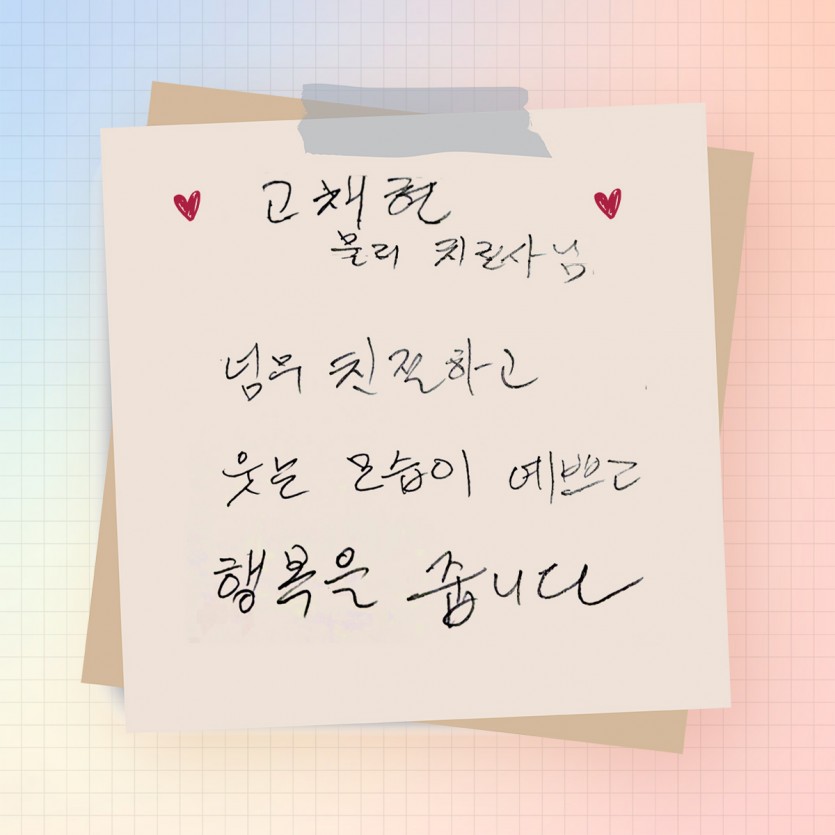 고채현
물리 치료사님
넘무 친절하고
웃는 모습이 예쁘고
행복을 줍니다